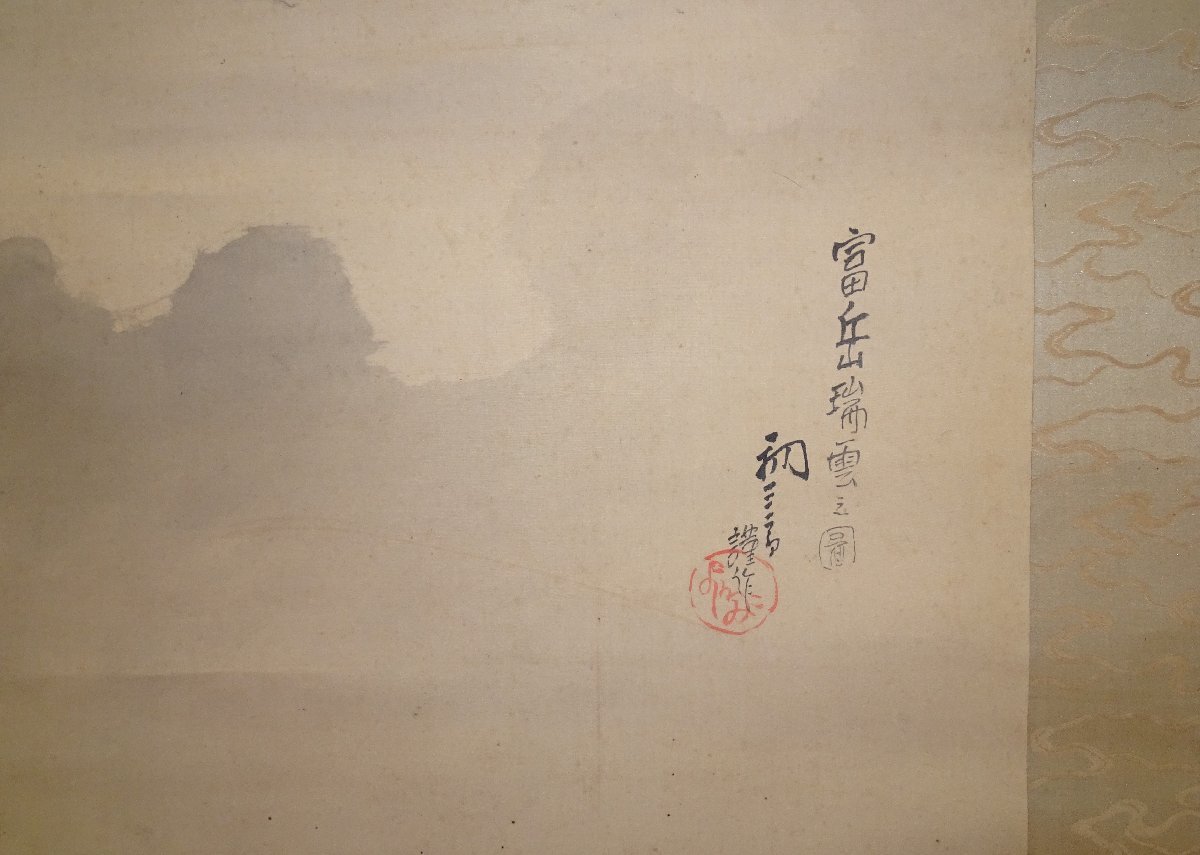 富岳瑞雲之圖
初三郎
謹作